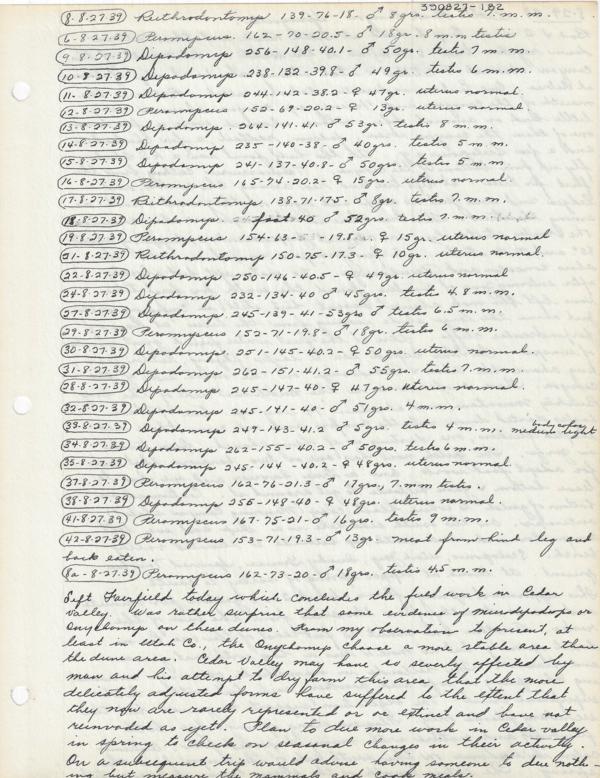 390827-182
8-8-27-39 Reithrodontomys 139-76-18-♂ 8grs. testis 7.m.m.
6-8-27-39 Peromyscus. 162-70-20.5-♂ 18gr. 8 m.m testis
9-8-27-39 Dipodomys 256-148-40.1-♂ 50gr. testis 7 m.m.
10-8-27-39 Dipodomys 238-132-39.8-♂ 49gr. testis 6 m.m.
11-8-27-39 Dipodomys 244-142-38.2-♀ 47gr. uterus normal.
12-8-27-39 Peromyscus 152-69-20.2-♀ 13gr. uterus normal.
13-8-27-39 Dipodomys. 264-141-41.♂ 53gr. testis 8 m.m.
14-8-27-39 Dipodomys 235-140-38-♂ 40grs. testis 5 m.m.
15-8-27-39 Dipodomys 241-137-40.8-♂ 50grs. testis 5 m.m
16-8-27-39 Peromyscus 165-74-20.2-♀ 15grs. uterus normal.
17-8-27-39 Reithrodontomys 138-71-17.5-♂ 8gr. testis 7.m.m.
18-8-27-39 Dipodomys. foot 40 ♂ 52grs. testis 7.m.m.
19-8-27-39 Peromyscus 154-63- -19.8-. ♀ 15gr. uterus normal
21-8-27-39 Reithrodontomys 150-75-17.3-♀ 10gr. uterus normal.
22-8-27-39 Dipodomys 250-146-40.5-♀ 49gr. uterus normal
24-8-27-39 Dipodomys 232-134-40 ♂ 45grs. testis 4.8 m.m.
27-8-27-39 Dipodomys 245-139-41-53grs ♂ testis 6.5 m.m.
29-8-27-39 Peromyscus 152-71-19.8-♂ 18gr. testis 6 m.m.
30-8-27-39 Dipodomys 251-145-40.2-♀ 50grs. uterus normal.
31-8-27-39 Dipodomys 262-151-41.2-♂ 55grs. testis 7.m.m.
28-8-27-39 Dipodomys 245-147-40-♀ 47grs. uterus normal.
32-8-27-39 Dipodomys 245-141-40-♂ 51grs. 4 m.m.
33-8-27-39 Dipodomys 249-143-41.2 ♂ 5grs. testis 4 m.m. body color medium light
34-8-27-39 Dipodomys 262-155-40.2-♂ 50grs. testis 6 m.m.
35-8-27-39 Dipodomys 245-144-40.2-♀ 48grs. uterus normal.
37-8-27-39 Peromyscus 162-76-21.3-♂ 17grs., 7.mm testis.
38-8-27-39 Dipodomys 255-148-40-♀ 48grs. uterus normal.
41-8-27-39 Peromyscus 167-75-21-♂ 16grs. testis 9 m.m.
42-8-27-39 Peromyscus 153-71-19.3-♂ 13gr. meat from hind leg and
back eaten.
8a-8-27-39 Peromyscus 162-73-20-♂ 18grs. testis 4.5 m.m.
Left Fairfield today which concludes the field work in Cedar
Valley. Was rather surprise that some evidence of Microdipodops or
Onychomys on these dunes. From my observation to present, at
least in Utah Co., the Onychomys choose a more stable area than
the dune area. Cedar Valley may have so severly affected by
man and his attempt to dry farm this area that the more
delicately adjusted forms have suffered to the extent that
they now are rarely represented or are extinct and have not
reinvaded as yet. Plan to due more work in Cedar Valley
in spring to check on seasonal changes in their activity.
On a subsequent trip would advise having someone to due noth-
ing but measure the mammals and cook meals.